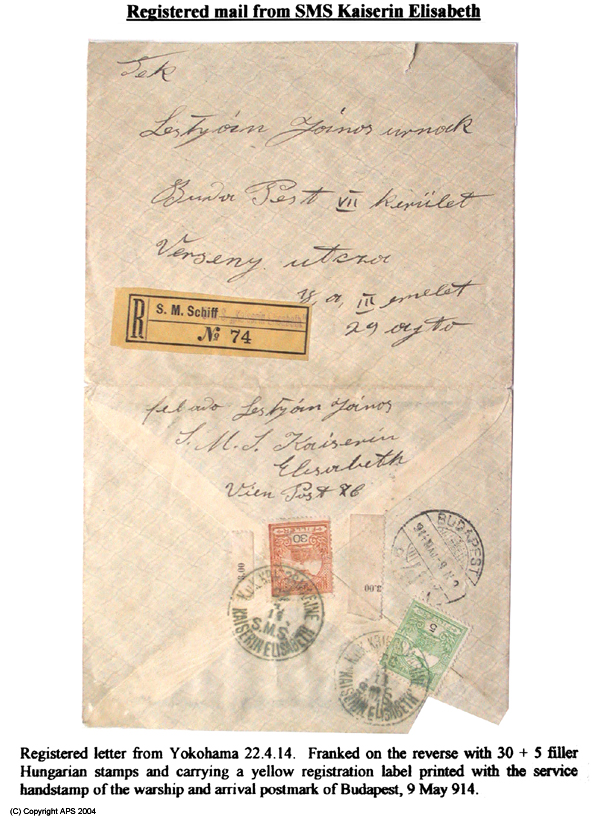 Registered mail from SMS Kaiserin Elisabeth
Tek
Lestyán János urnak
Buda Pest VII kerület
Verseny utsza
a, III emelet
29 ajto
R
S. M. Schiff Kaiserin Elisabeth
№ 74
felado Lestyán János
S. M. S Kaiserin
Elisabeth
Vien Post 76
30
3.00
3.00
BUDAPEST
S.M.S.
KAISERIN ELISABETH
5
KAISERIN ELISABETH
Registered letter from Yokohama 22.4.14. Franked on the reverse with 30 + 5 filler
Hungarian stamps and carrying a yellow registration label printed with the service
handstamp of the warship and arrival postmark of Budapest, 9 May 914.
(C) Copyright APS 2004